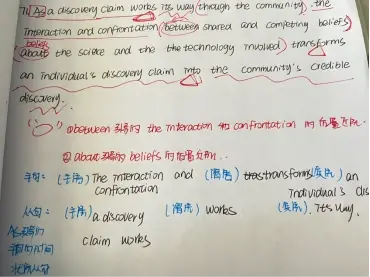 As a discovery claim works its way (through the community), the
interaction and confrontation (between shared and competing beliefs)
beliefs
about the science and the the technology involved) transforms
an individual's discovery claim into the community's credible
discovery.
"( )" ①between 引导的 the interaction and confrontation 的后置定语.
② about 引导的 beliefs 的后置定语..
主句: (主语) The interaction and confrontation (谓语) transforms (宾语) an individual's dis
从句: (主语) a discovery claim works (谓语) works (宾语). Its way.
As引导的
时间
状语从句